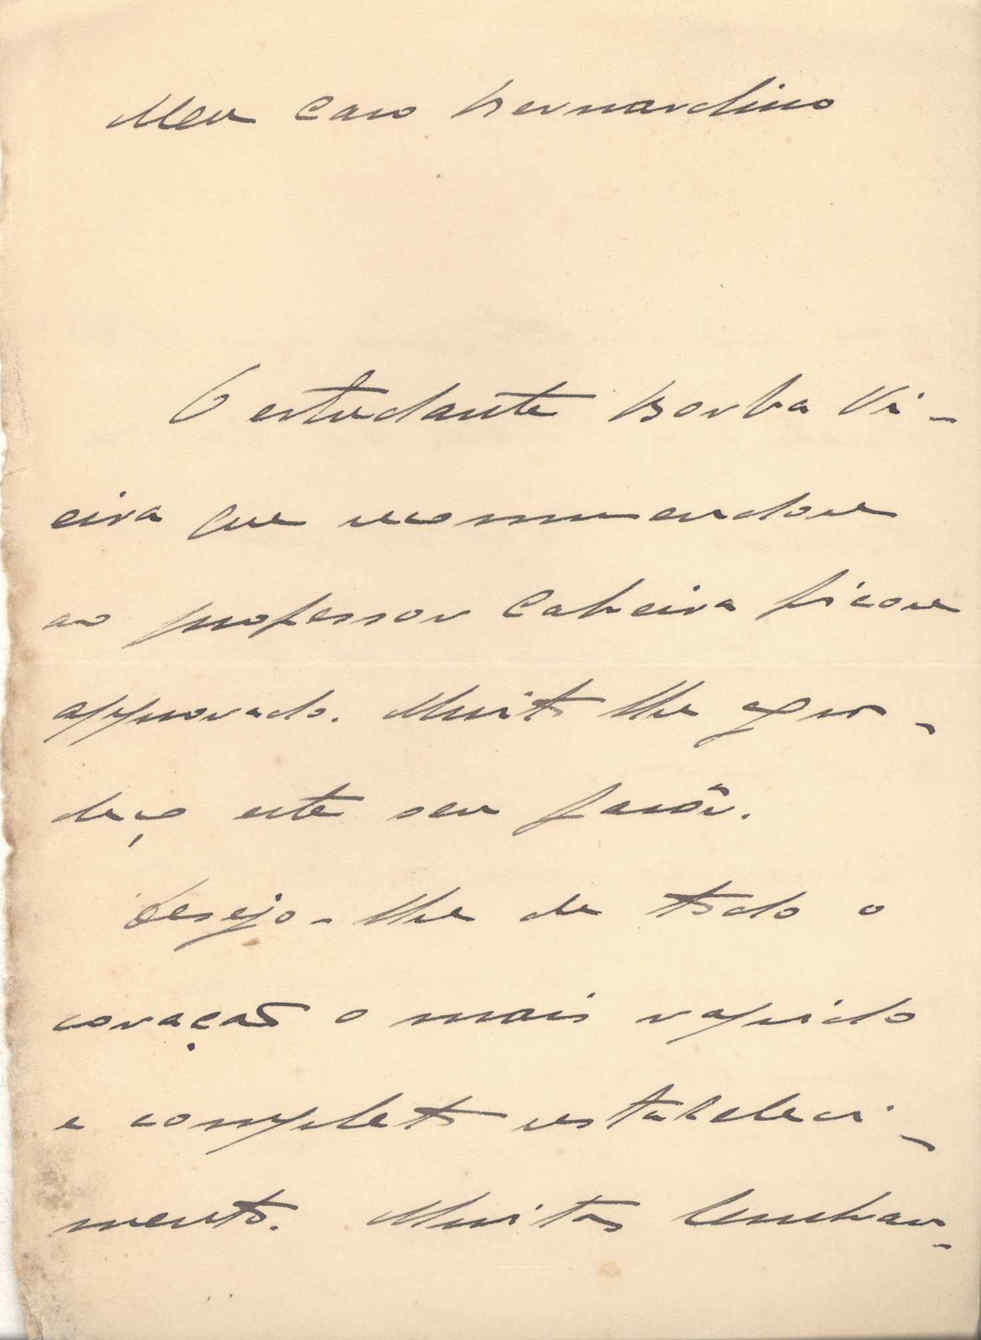 Meu caro Bernardino
O estudante Borba Vi-
eira que recommendou
ao professor Cabeira ficou
approvado. Muito lhe agra-
deço este seu favôr.
Desejo-lhe de todo o
coração o mais rapido
e completo restabeleci-
mento. Muitas lembran-